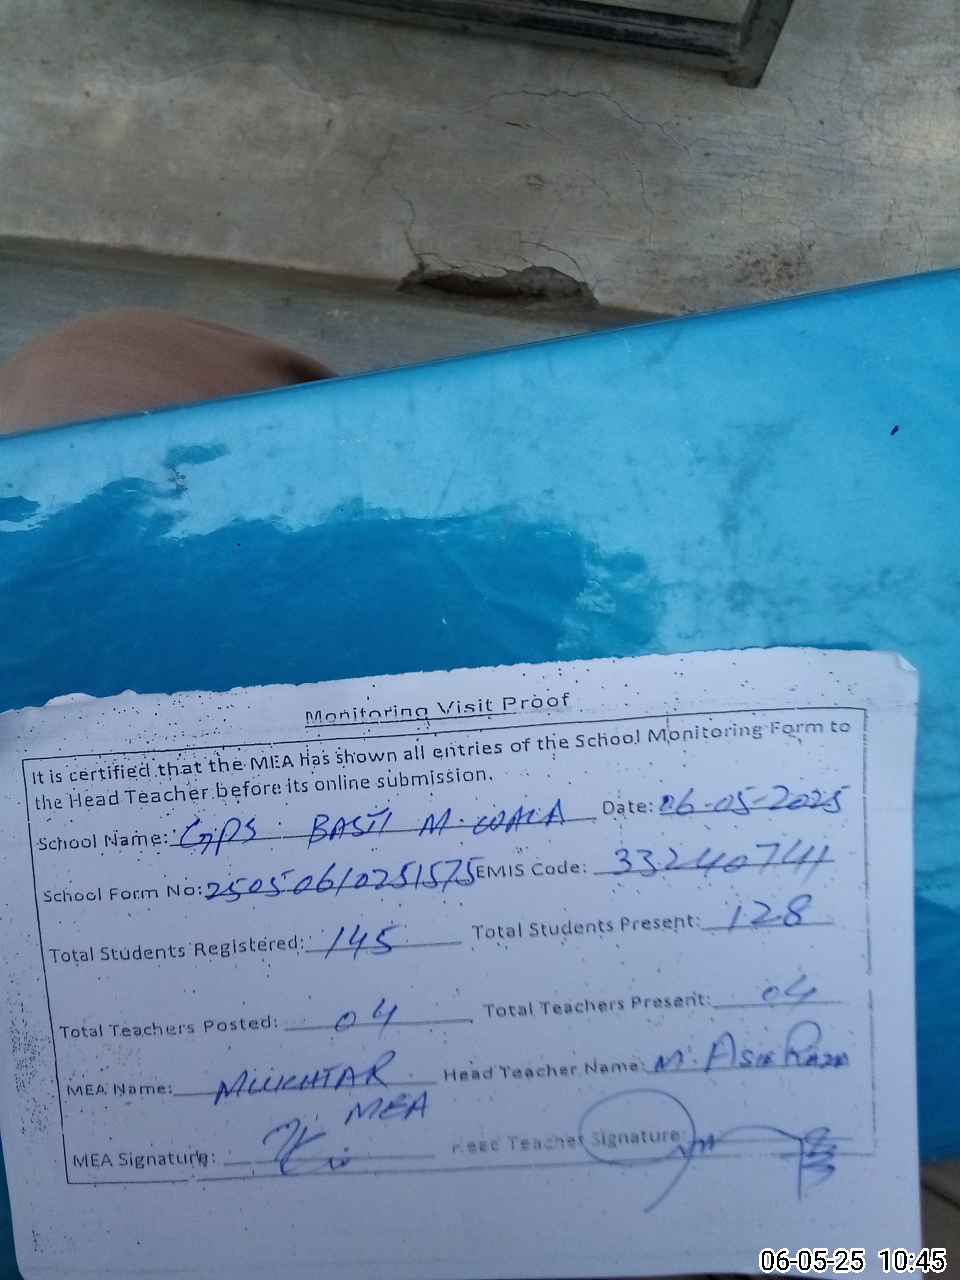 Monitoring Visit Proof
It is certified that the MEA has shown all entries of the School Monitoring Form to
the Head Teacher before its online submission.
School Name: GPS BASTI M. WALA Date: 06-05-2025
School Form No: 25050610251575 EMIS Code: 33240741
Total Students Registered: 145 Total Students Present: 128
Total Teachers Posted: 04 Total Teachers Present: 04
MEA Name: MUKHTAR Head Teacher Name: M. Asif Raza
MEA
MEA Signature: Head Teacher Signature:
06-05-25 10:45